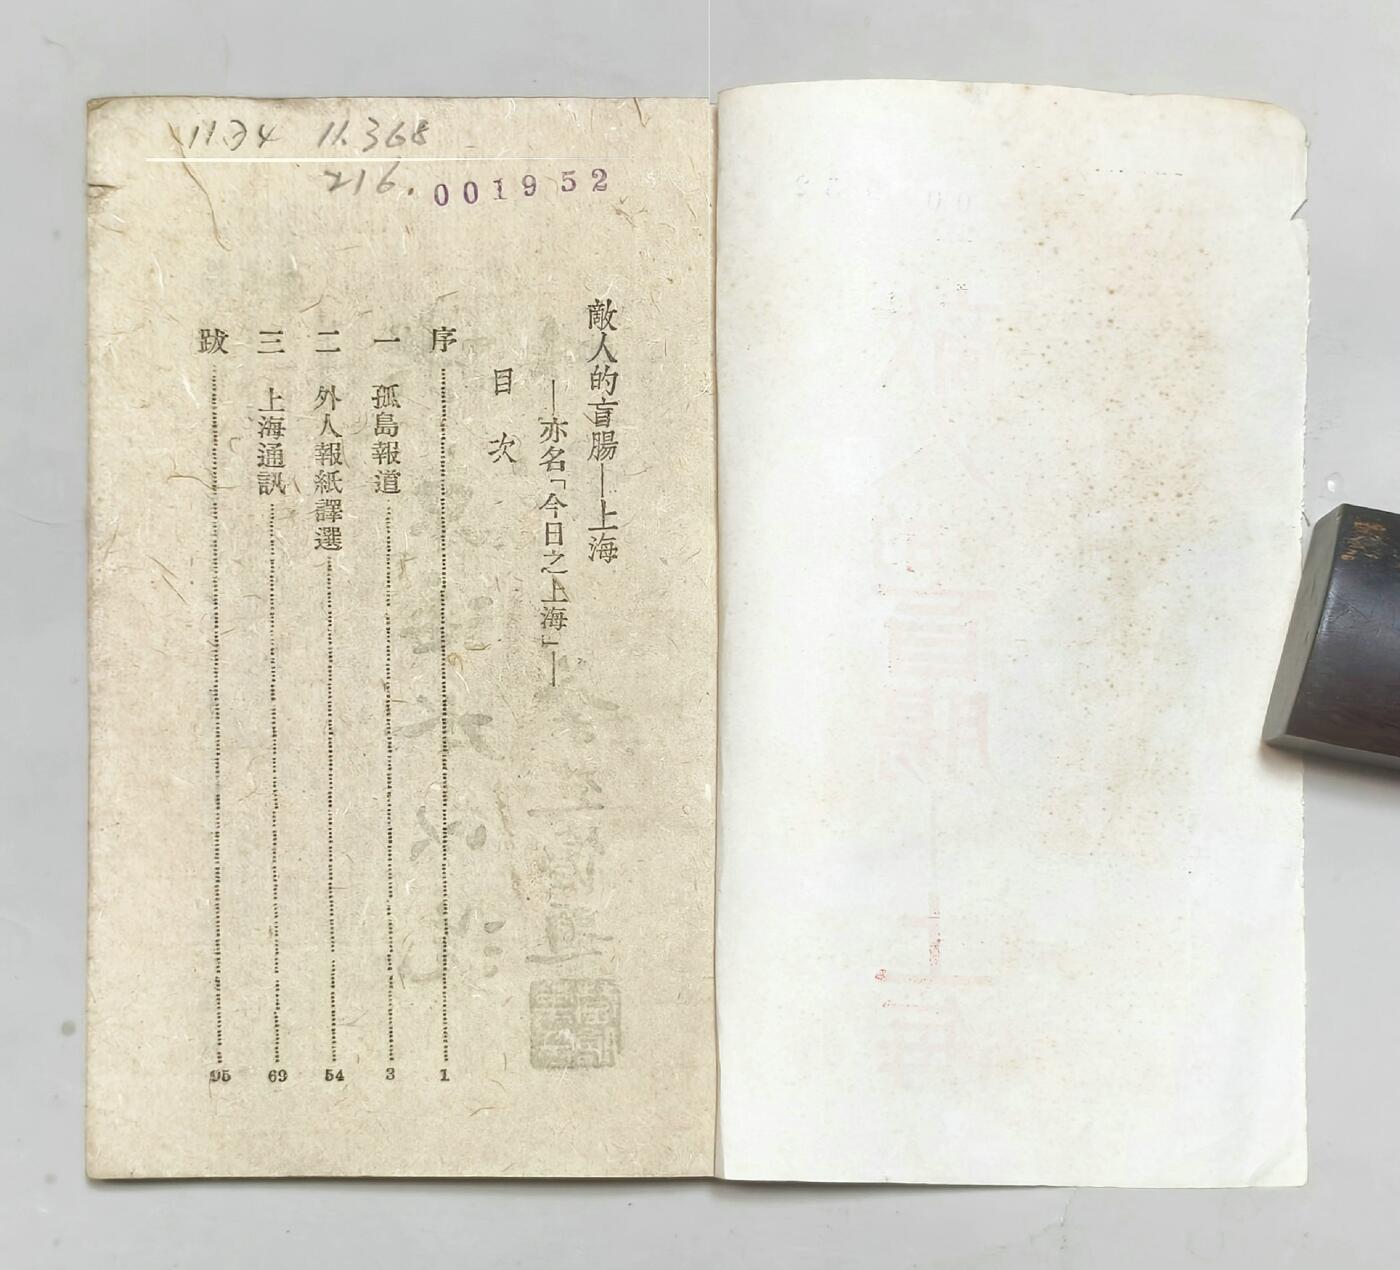 11.368
216.
001952
敵人的盲腸—上海
—亦名「今日之上海」—
目次
序 1
一 孤島報道 3
二 外人報紙譯選 54
三 上海通訊 69
跋 95